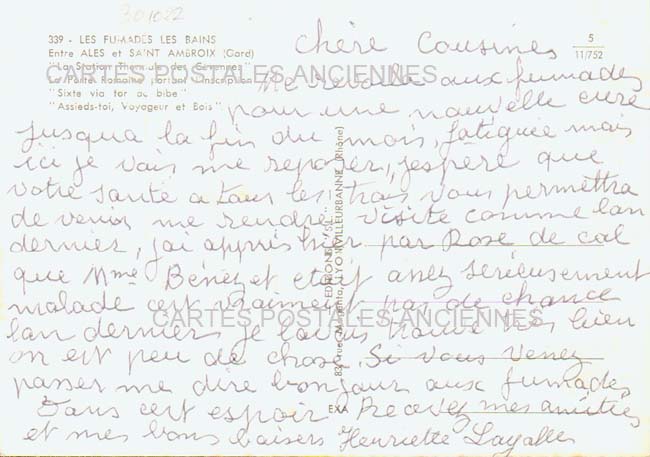 301022
339 - LES FUMADES LES BAINS
Entre ALES et SAINT AMBROIX (Gard)
"La Station Thermale des Cévennes"
La Porte Romaine portant l'inscription
"Sixte via tor au bibe"
"Assieds-toi, Voyageur et Bois"
5
11/752
CARTES POSTALES ANCIENNES
chère Cousines
Me revoila aux fumades
pour une nouvelle cure
jusqua la fin du mois, fatiguée mais
ici je vais me reposer, jespère que
votre santé a tous les trois vous permettra
de venir me rendre visite comme lan
dernier, jai appris hier par Rose de cal
que Mme Benezet etait assez sérieusement
malade cest vraiment pas de chance
lan dernier je lavais trouvé très bien
on est peu de chose. Si vous venez
passer me dire bonjour aux fumades
Dans cet espoir Recevez mes amitiés
et mes bons baisers Henriette
CARTES POSTALES ANCIENNES
EXA
"EDITIONS "SL"
83, rue Magenta, LYON-VILLEURBANNE (Rhône)